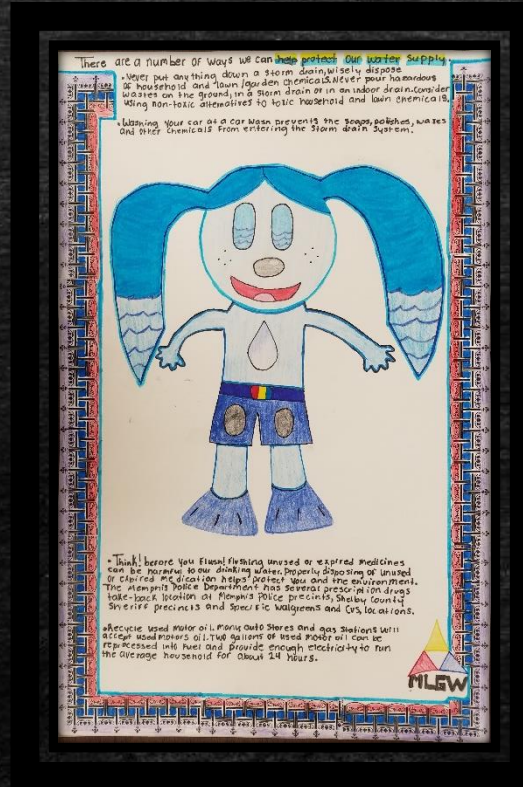 There are a number of ways we can help protect our water supply.
• Never put anything down a storm drain, wisely dispose
of household and lawn/garden chemicals. Never pour hazardous
wastes on the ground, in a storm drain or in an indoor drain. consider
using non-toxic alternatives to toxic household and lawn chemicals.
• Washing your car at a car wash prevents the soaps, polishes, waxes
and other chemicals from entering the storm drain system.
• Think! before you flush! flushing unused or expired medicines
can be harmful to our drinking water. Properly disposing of unused
or expired medication helps protect you and the environment.
The Memphis Police Department has several prescription drugs
take-back location at Memphis Police precincts, Shelby County
Sheriff precincts and specific walgreens and CVS, locations.
• Recycle used motor oil. Many auto stores and gas stations will
accept used motors oil. Two gallons of used motor oil can be
reprocessed into fuel and provide enough electricity to run
the average household for about 24 hours.
MLGW